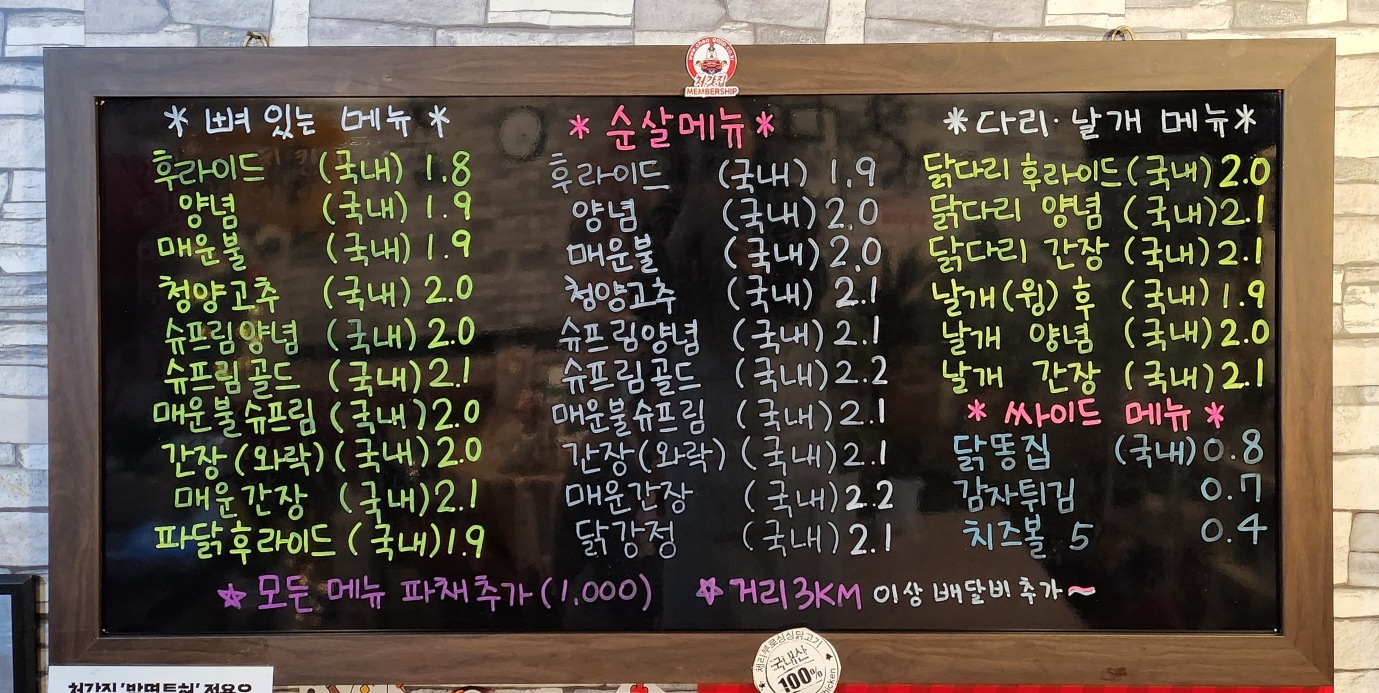 처갓집
MEMBERSHIP
* 뼈 있는 메뉴 *
후라이드 (국내) 1.8
양념 (국내) 1.9
매운불 (국내) 1.9
청양고추 (국내) 2.0
슈프림양념 (국내) 2.0
슈프림골드 (국내) 2.1
매운불슈프림 (국내) 2.0
간장(와락) (국내) 2.0
매운간장 (국내) 2.1
파닭후라이드 (국내) 1.9
* 순살메뉴 *
후라이드 (국내) 1.9
양념 (국내) 2.0
매운불 (국내) 2.0
청양고추 (국내) 2.1
슈프림양념 (국내) 2.1
슈프림골드 (국내) 2.2
매운불슈프림 (국내) 2.1
간장(와락) (국내) 2.1
매운간장 (국내) 2.2
닭강정 (국내) 2.1
* 다리·날개 메뉴 *
닭다리 후라이드 (국내) 2.0
닭다리 양념 (국내) 2.1
닭다리 간장 (국내) 2.1
날개(윙) 후 (국내) 1.9
날개 양념 (국내) 2.0
날개 간장 (국내) 2.1
* 싸이드 메뉴 *
닭똥집 (국내) 0.8
감자튀김 0.7
치즈볼 5 0.4
☆ 모든 메뉴 파채추가 (1,000)
☆ 거리 3KM 이상 배달비 추가~
국내산
100%